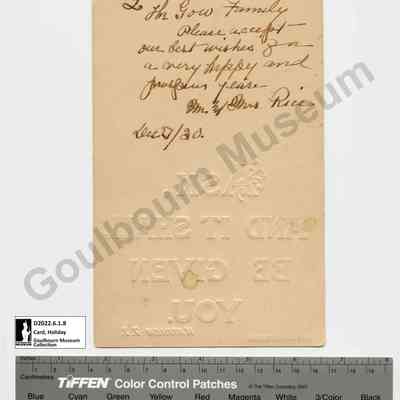 To The Gow Family
Please accept
our best wishes for
a very happy and
prosperous year
Mr. & Mrs. Rice
Dec 7/30.
ASK
AND IT SHALL
BE GIVEN
YOU
Goulbourn Museum
D2022.6.1.8
Card, Holiday
Goulbourn Museum
Collection
Inches
Centimetres
TIFFEN Color Control Patches
© The Tiffen Company, 2007
Blue Cyan Green Yellow Red Magenta White 3/Color Black